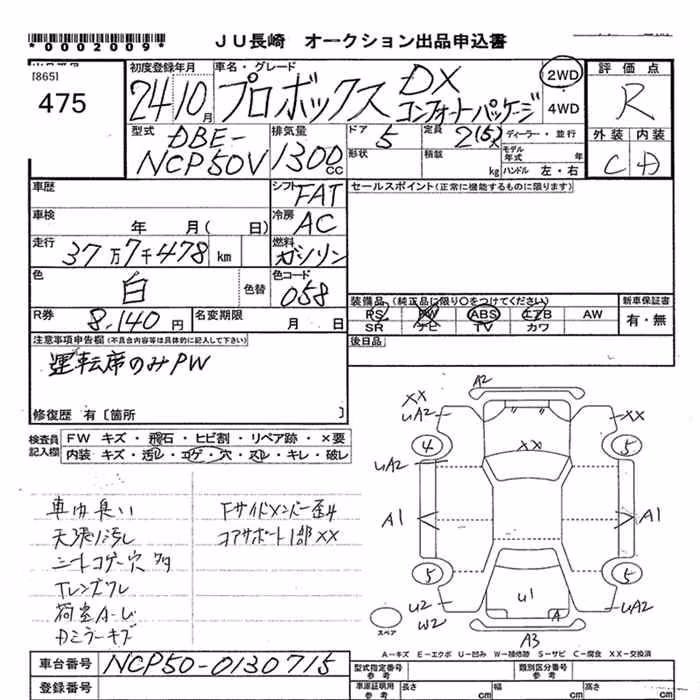 *0002009*
JU長崎 オークション出品申込書
[865]
475
初度登録年月
24年10月
車名・グレード
プロボックス DX
コンフォートパッケージ
2WD
4WD
評価点
R
外装 内装
C A
型式
DBE-
NCP50V
排気量
1300cc
ドア
5
形状
定員
2(5)
積載
kg
ディーラー・並行
モデル年式
年
ハンドル 左・右
車歴
シフト FAT
セールスポイント(正常に機能するものに限ります)
車検 年 月( 日)
冷房 AC
走行 37万7千478km
燃料 ガソリン
色 白 色替
色コード 058
装備品(純正品に限り○をつけてください)
PS PW ABS エアB AW
SR ナビ TV カワ
新車保証書
有・無
R券 8,140円
名変期限 月 日
後日品
注意事項申告欄(不具合内容等は具体的に記入して下さい)
運転席のみPW
修復歴 有〔箇所 〕
検査員記入欄
FW キズ・飛石・ヒビ割・リペア跡・×要
内装 キズ・汚レ・コゲ・穴・スレ・キレ・破レ
車内臭い
天張り汚レ
シートコゲ穴
荷室A-U
Fサイドメンバー歪み
コアサポート1部XX
A2
XX
UA2
XX
UA2
4
5
XX
UA2
A1
A1
5
5
U2
W2
U1
A
UA2
A3
スペア
A-キズ E-エクボ U-凹み W-補修跡 S-サビ C-腐食 XX-交換済
車台番号 NCP50-0130715
登録番号
型式指定番号
類別区分番号
車庫証明用参考
長さ cm
幅 cm
高さ cm